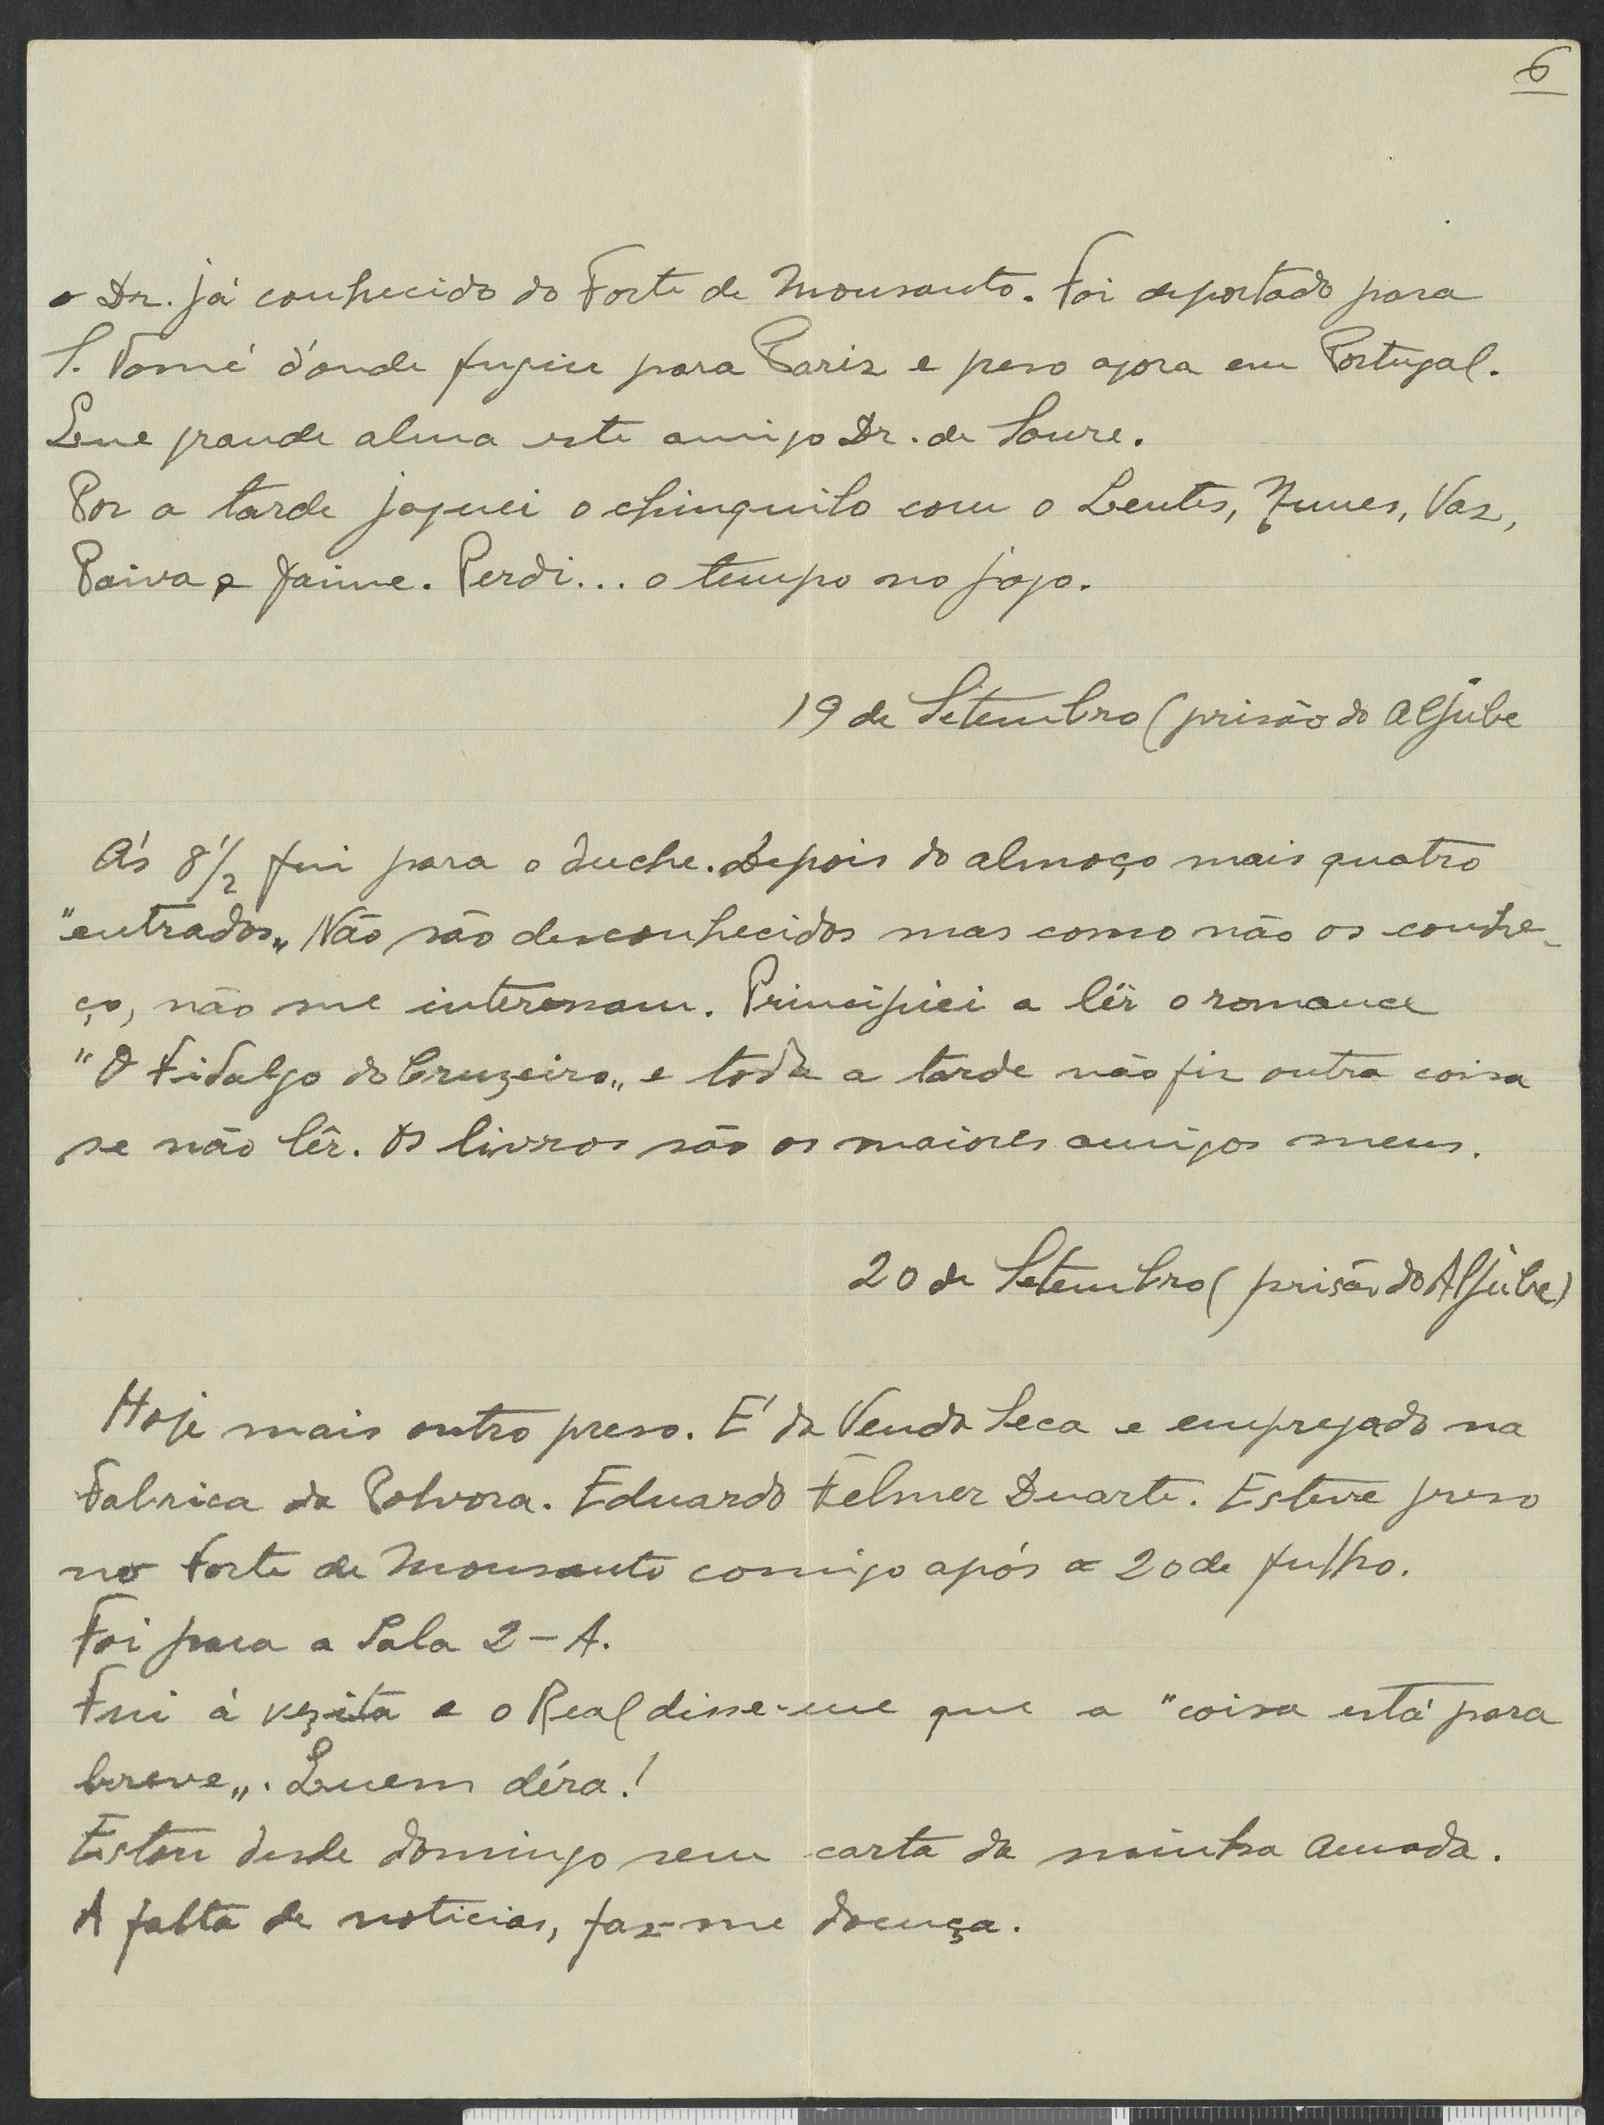 6
o Dr. já conhecido do Forte de Monsanto. Foi deportado para
S. Tomé d'onde fugiu para Pariz e preso agora em Portugal.
Que grande alma este amigo Dr. de Soure.
Por a tarde joguei o chinquilo com o Bentes, Nunes, Vaz,
Paiva e Jaime. Perdi... o tempo no jogo.
19 de Setembro (prisão do Aljube
Ás 8 1/2 fui para o duche. Depois do almoço mais quatro
"entrados„ Não são desconhecidos mas como não os conhe-
ço, não me interessam. Principiei a lêr o romance
"O Fidalgo do Cruzeiro„ e toda a tarde não fiz outra coisa
se não lêr. Os livros são os maiores amigos meus.
20 de Setembro (prisão do Aljube)
Hoje mais outro preso. E' da Venda Seca e empregado na
Fabrica da Polvora. Eduardo Felmer Duarte. Esteve preso
no Forte de Monsanto comigo após a 20 de Julho.
Foi para a Sala 2-A.
Fui á vezita e o Real disse-me que a "coisa está para
breve„. Quem déra!
Estou desde domingo sem carta da minha amada.
A falta de noticias, faz-me doença.